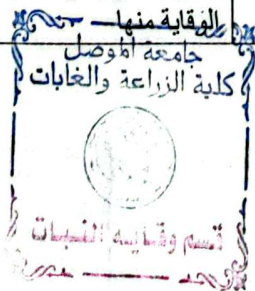 الوقاية منها
جامعة الموصل
كلية الزراعة والغابات
قسم وقاية النبات